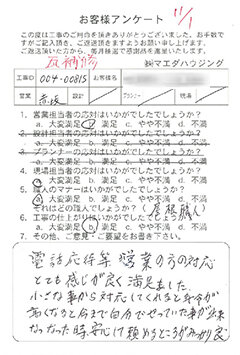 お客様アンケート
11/1
この度は工事のご用命を頂きありがとうございました。お手数で
すがご記入頂き、ご返送頂きますようお願い申し上げます。
ご返送頂いた方から、毎月抽選で感謝品を進呈いたします。
雨樋修
㈱マエダハウジング
工事ID 004-00815 お客様名
営業 赤坂
1. 営業担当者の応対はいかがでしたでしょうか?
a. 大変満足 b. 満足 c. やや不満 d. 不満
2. 設計担当者の応対はいかがでしたでしょうか?
a. 大変満足 b. 満足 c. やや不満 d. 不満
3. プランナーの応対はいかがでしたでしょうか?
a. 大変満足 b. 満足 c. やや不満 d. 不満
4. 現場担当者の応対はいかがでしたでしょうか?
a. 大変満足 b. 満足 c. やや不満 d. 不満
5. 職人のマナーはいかがでしたでしょうか?
a. 大変満足 b. 満足 c. やや不満 d. 不満
それはどの職人でしょうか?(屋根職人)
6. 工事の仕上がりはいかがでしたでしょうか?
a. 大変満足 b. 満足 c. やや不満 d. 不満
7. その他、ご意見・ご要望をお書き下さい。
電話応待等 営業の方の対応
とても感じが良く満足ました
小さな事から対応してくれると
なくなると今まで自分でやっていた事が出来
なかった時、安心して頼めるところがあり良